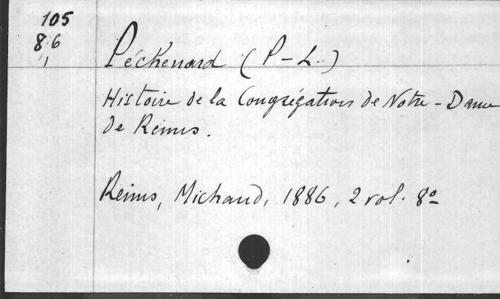 105
8.6
1
Péchenard (P-L..)
Histoire de la Congrégation de Notre-Dame
de Reims.
Reims, Michaud, 1886, 2 vol. 8º